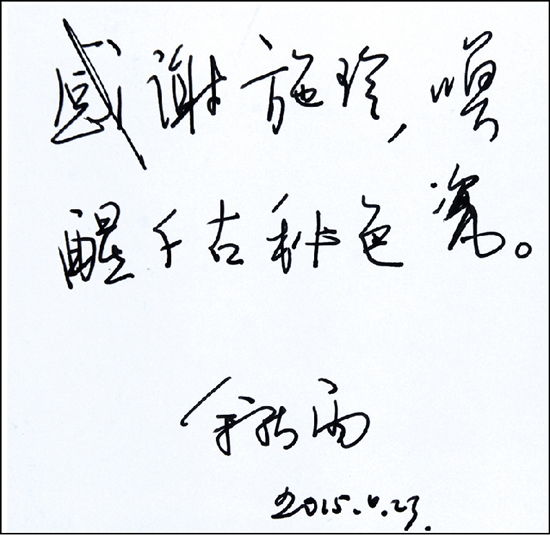 感谢施珍，唤
醒千古秘色瓷。
余秋雨
2015.4.23.